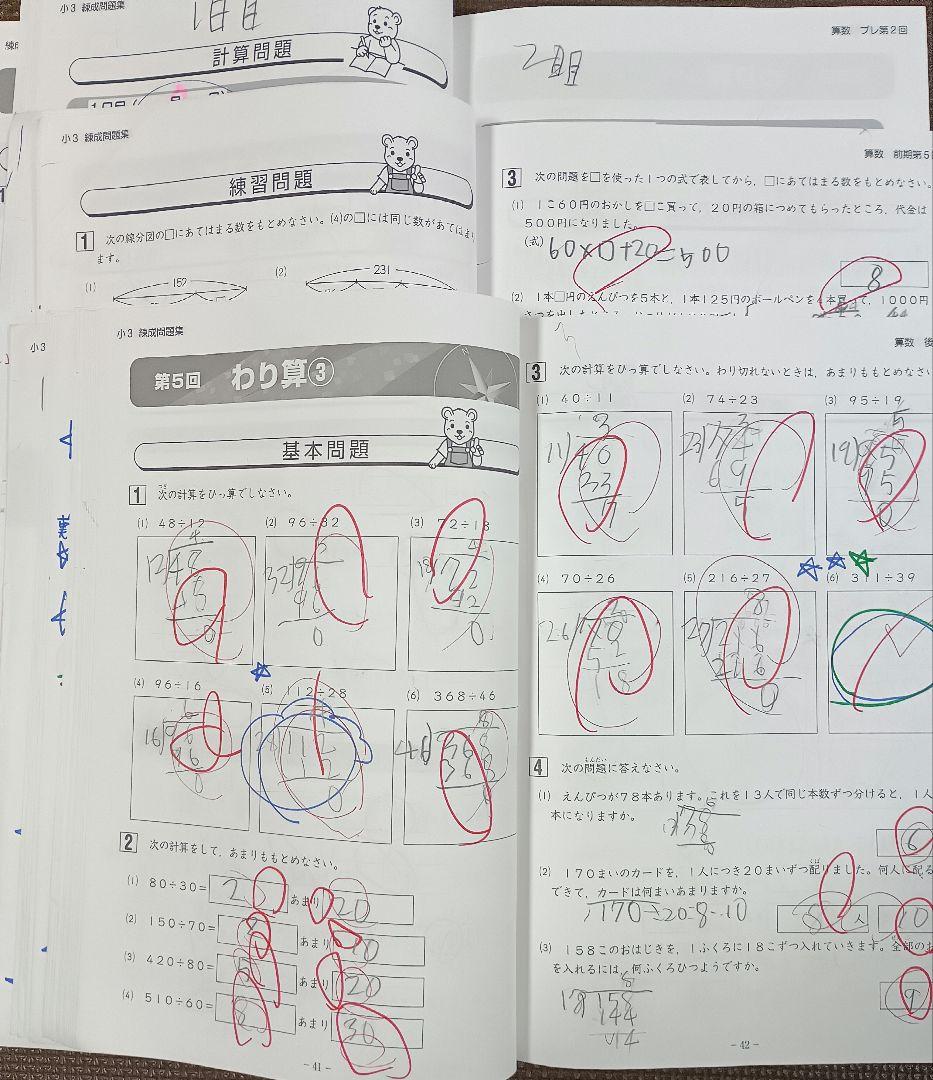 小3 練成問題集
1日目
計算問題
算数 プレ第2回
2期
小3 練成問題集
練習問題
1 次の線分図の□にあてはまる数をもとめなさい。(4)の□には同じ数があてはまり
ます。
(1) 152
(2) 231
算数 前期第5
3 次の問題を□を使った1つの式で表してから、□にあてはまる数をもとめなさい。
(1) 1こ60円のおかしを□こ買って、20円の箱につめてもらったところ、代金は
500円になりました。
(式) 60×□+20=500
8
(2) 1本□円のえんぴつを5本と、1本125円のボールペンを4本買って、1000円
小3
小3 練成問題集
第5回 わり算③
基本問題
1 次の計算をひっ算でしなさい。
(1) 48÷12
(2) 96÷32
(3) 72÷18
(4) 96÷16
(5) 112÷28
(6) 368÷46
2 次の計算をして、あまりももとめなさい。
(1) 80÷30= 2 あまり 20
(2) 150÷70= 2 あまり 10
(3) 420÷80= 5 あまり 20
(4) 510÷60= 8 あまり 30
-41-
算数 後
3 次の計算をひっ算でしなさい。わり切れないときは、あまりももとめなさい
(1) 40÷11
(2) 74÷23
(3) 95÷19
(4) 70÷26
(5) 216÷27
(6) 311÷39
4 次の問題に答えなさい。
(1) えんぴつが78本あります。これを13人で同じ本数ずつ分けると、1人
本になりますか。
6
(2) 170まいのカードを、1人につき20まいずつ配りました。何人に配る
できて、カードは何まいあまりますか。
170÷20=8…10
8 人 10
(3) 158このおはじきを、1ふくろに18こずつ入れていきます。全部のお
を入れるには、何ふくろひつようですか。
9
-42-